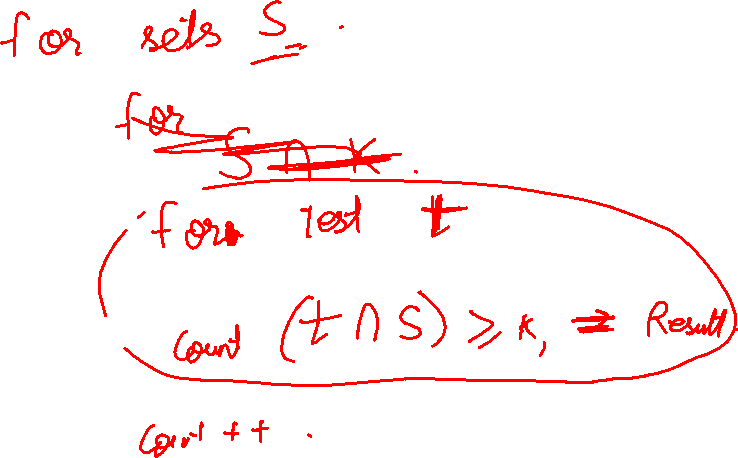 for sets S.
for
S ∩ K.
for Test t
Count (t ∩ S) ≥ K, = Result
Count ++.